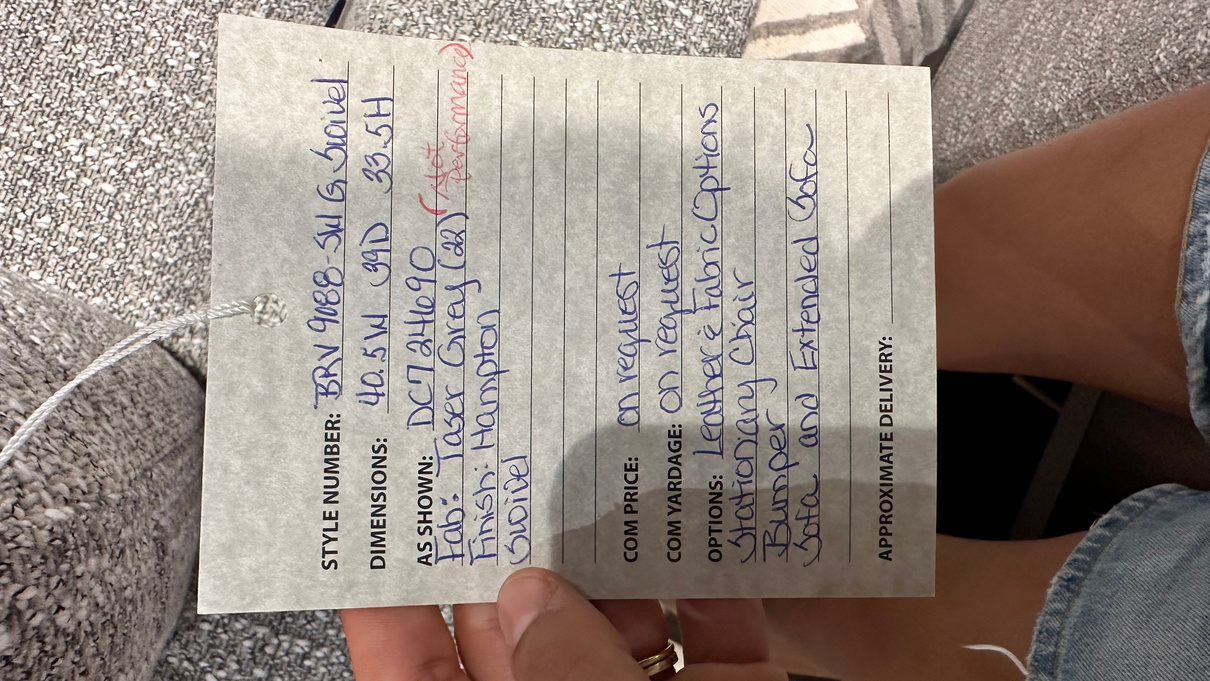 STYLE NUMBER: BRV 9088-SW G Swivel
DIMENSIONS: 40.5W 39D 33.5H
AS SHOWN: DC7 24690
Fab: Taser Grey (22) (Not performance)
Finish: Hampton
Swivel
COM PRICE: on request
COM YARDAGE: on request
OPTIONS: Leather & Fabric Options
Stationary Chair
Bumper
Sofa and Extended Sofa
APPROXIMATE DELIVERY: